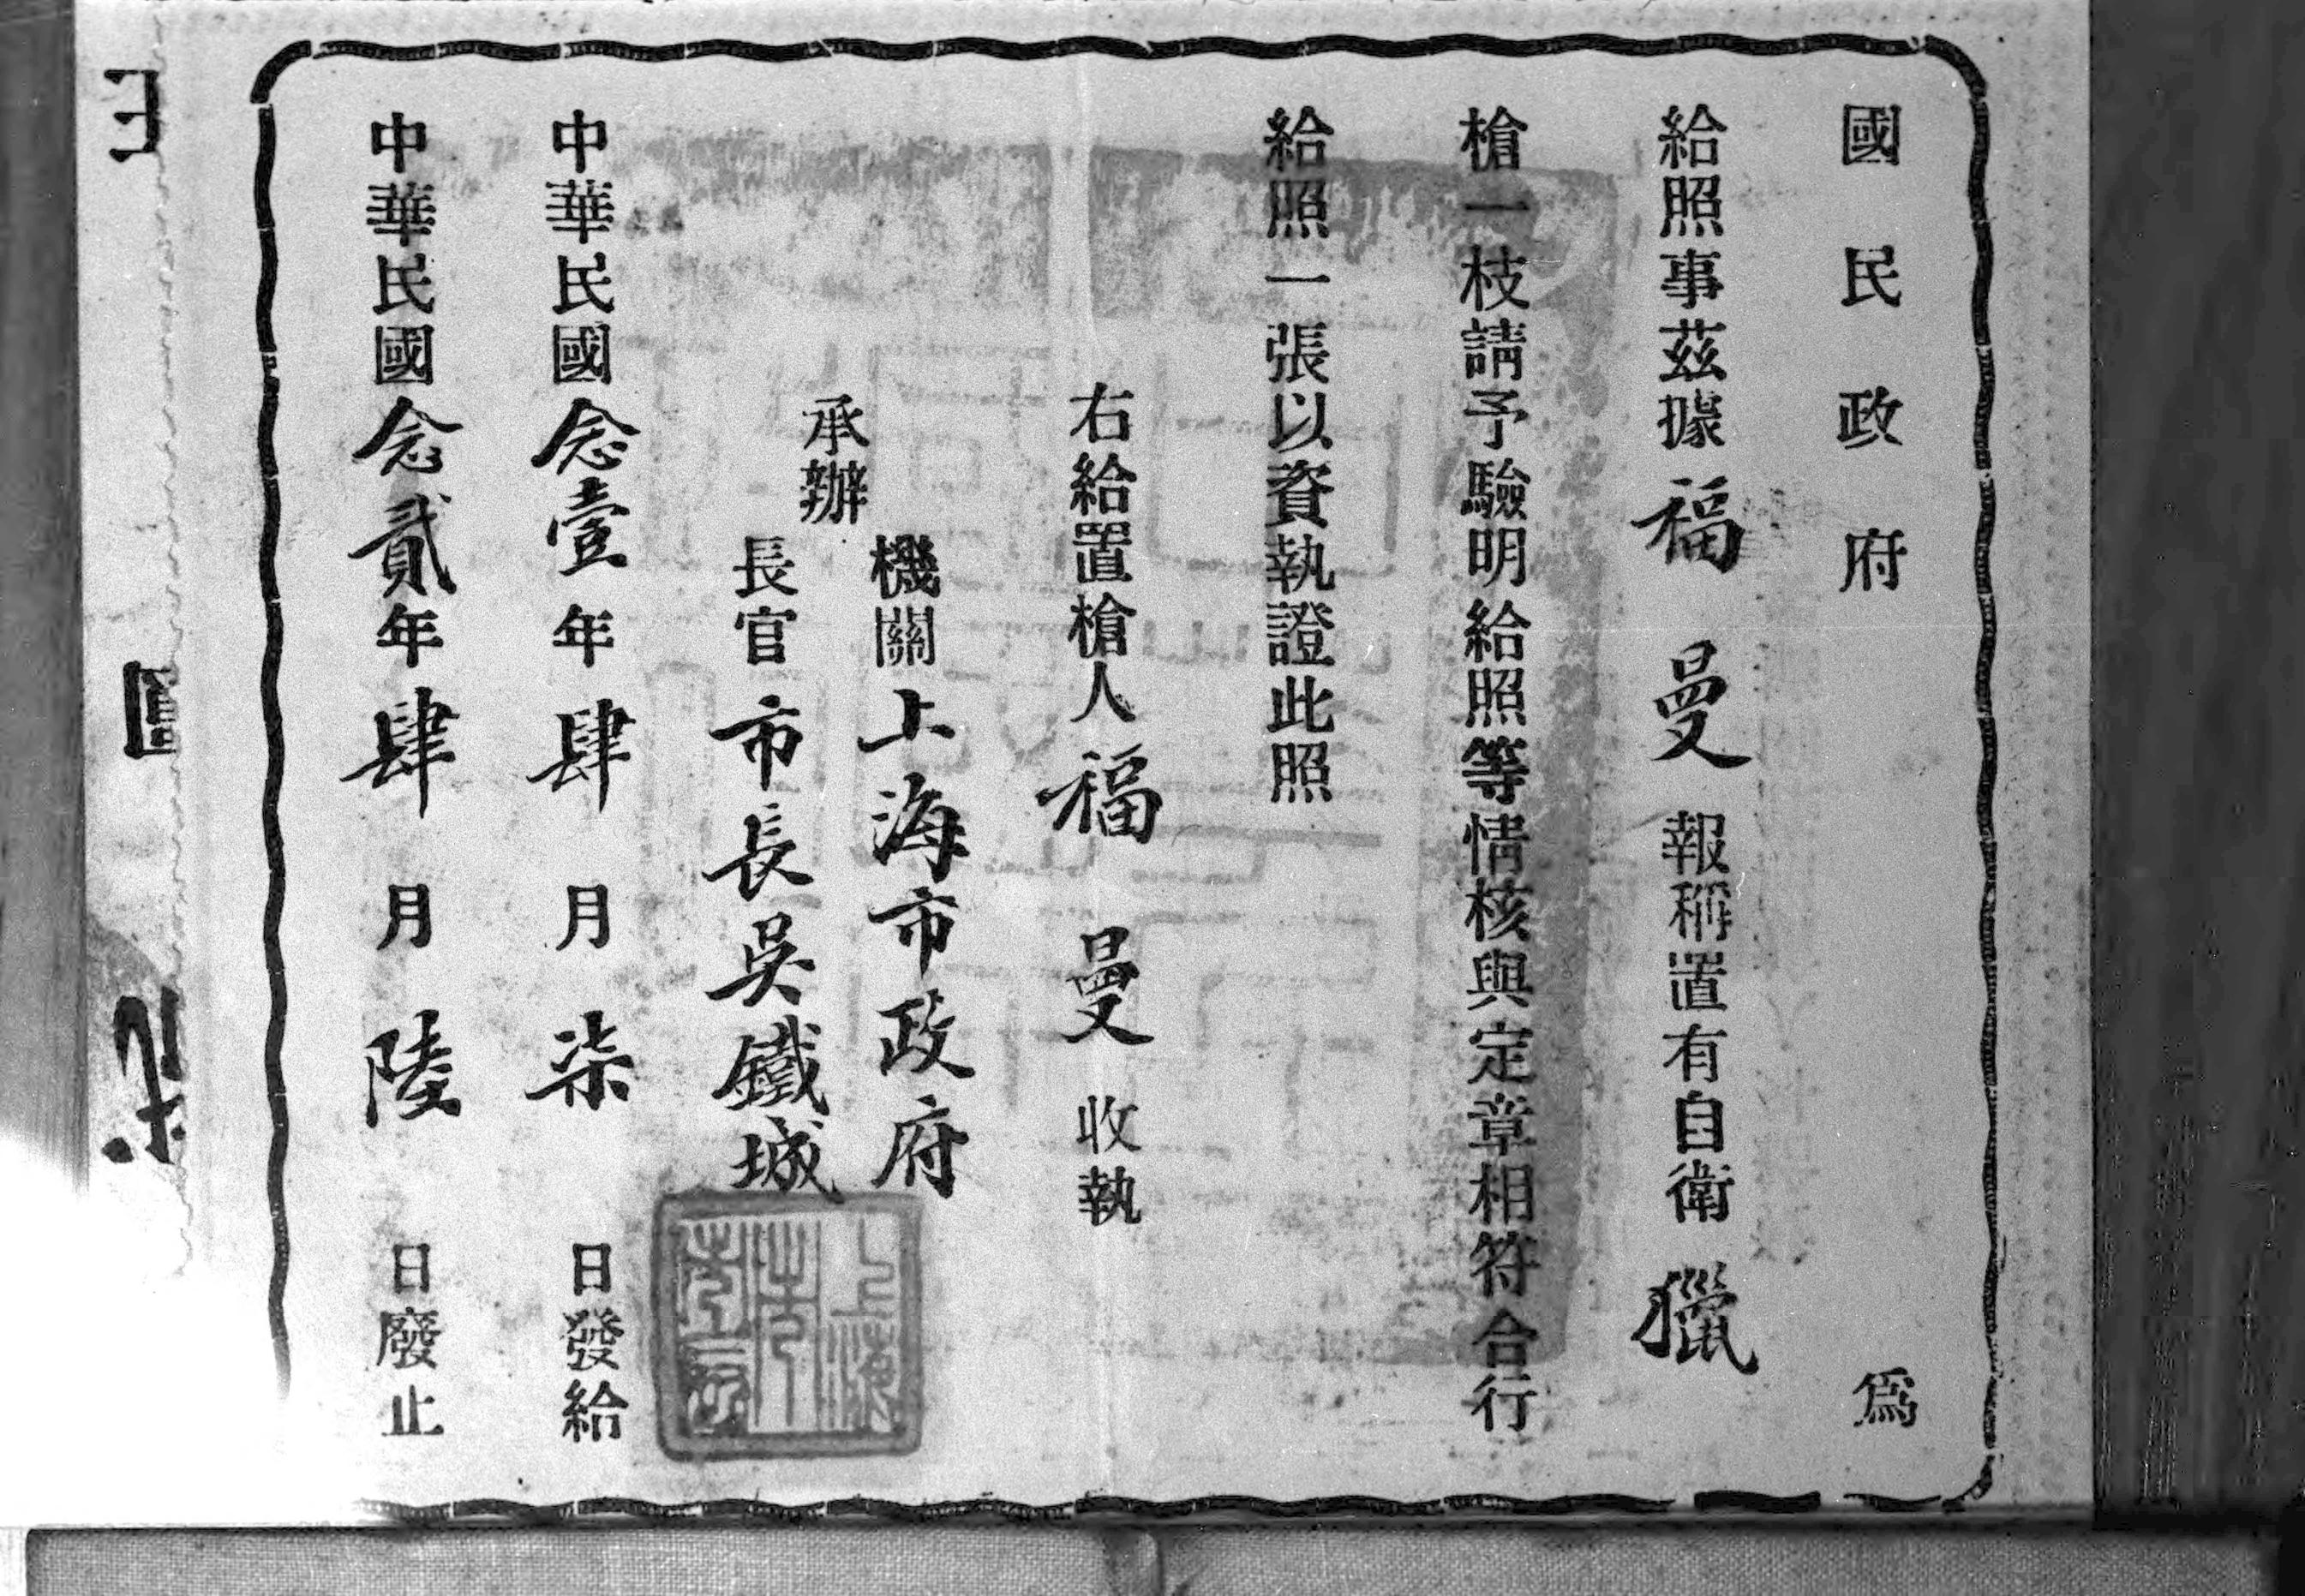 國民政府 為
給照事茲據福曼報稱置有自衛獵
槍一枝請予驗明給照等情核與定章相符合行
給照一張以資執證此照
右給置槍人福曼收執
承辦
機關上海市政府
長官市長吳鐵城
中華民國念壹年肆月柒日發給
中華民國念貳年肆月陸日廢止